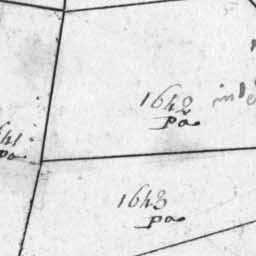 1642
pa
41
pa
1643
pa